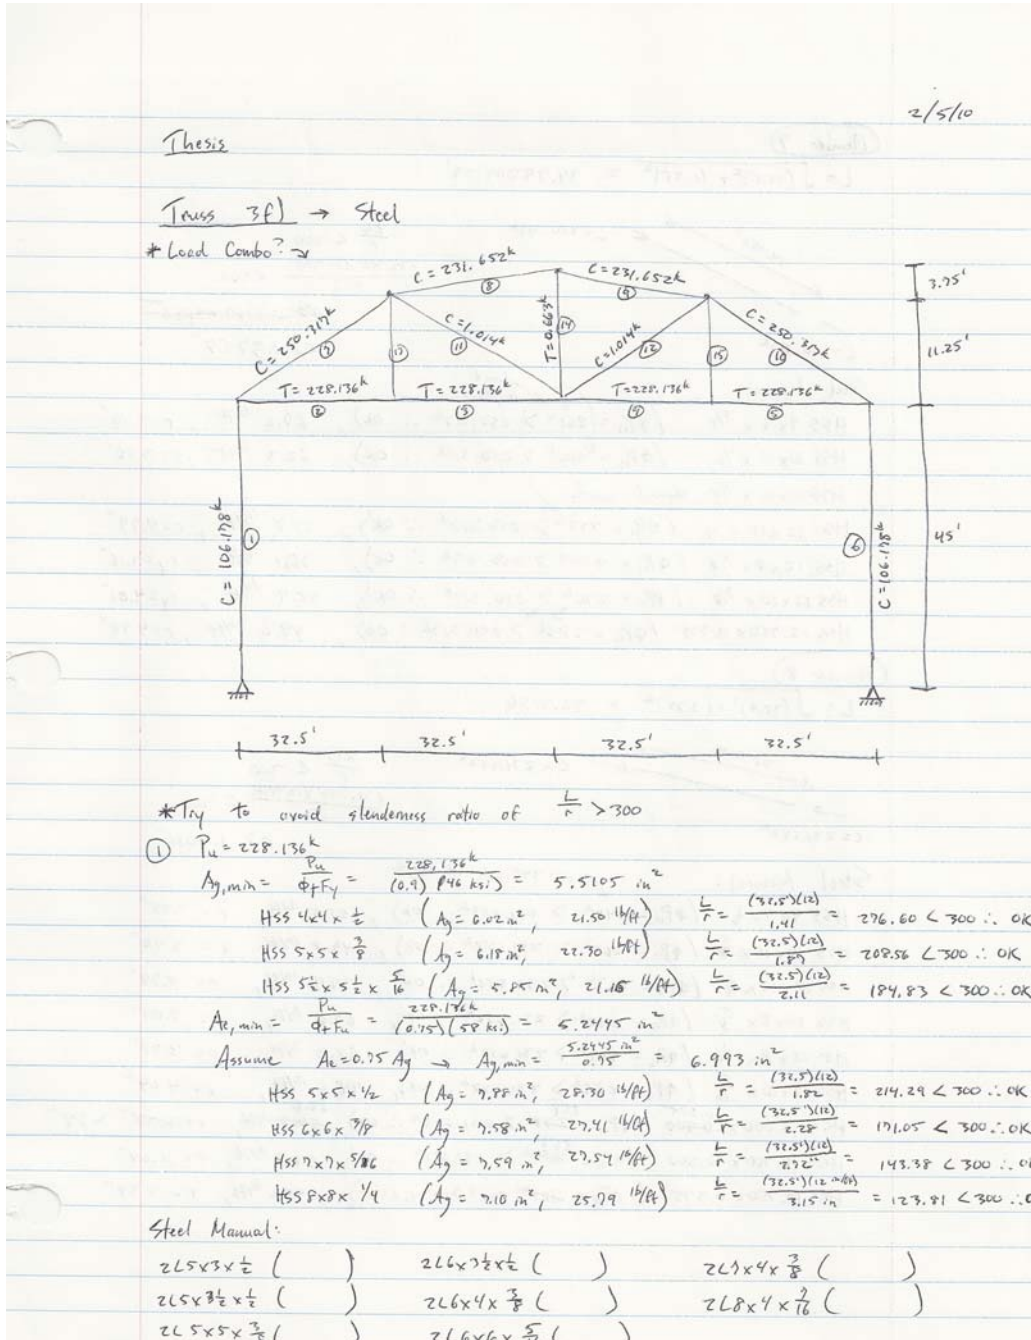 2/5/10
Thesis
Truss 3f) → Steel
* Load Combo? →
C = 231.652k
C = 231.652k
3.75'
⑧
⑨
C = 250.317k
C = 1.014k
T = 0.663k
C = 1.014k
C = 250.317k
11.25'
⑦ ⑬ ⑪ ⑭ ⑫ ⑮ ⑩
T = 228.136k T = 228.136k T = 228.136k T = 228.136k
② ③ ④ ⑤
C = 106.178k ① ⑥ C = 106.178k 45'
32.5' 32.5' 32.5' 32.5'
* Try to avoid slenderness ratio of L/r > 300
① Pu = 228.136k
Ag,min = Pu/ϕtFy = 228.136k/(0.9)(46 ksi) = 5.5105 in²
HSS 4x4x 1/2 (Ag = 6.02 in², 21.50 lb/ft) L/r = (32.5')(12)/1.41 = 276.60 < 300 ∴ OK
HSS 5x5x 3/8 (Ag = 6.18 in², 22.30 lb/ft) L/r = (32.5')(12)/1.87 = 208.56 < 300 ∴ OK
HSS 5½ x 5½ x 5/16 (Ag = 5.85 in², 21.15 lb/ft) L/r = (32.5')(12)/2.11 = 184.83 < 300 ∴ OK
Ae,min = Pu/ϕtFu = 228.136k/(0.75)(58 ksi) = 5.2445 in²
Assume Ae = 0.75 Ag → Ag,min = 5.2445 in²/0.75 = 6.993 in²
HSS 5x5x 1/2 (Ag = 7.88 in², 28.30 lb/ft) L/r = (32.5)(12)/1.82 = 214.29 < 300 ∴ OK
HSS 6x6x 3/8 (Ag = 7.58 in², 27.41 lb/ft) L/r = (32.5')(12)/2.28 = 171.05 < 300 ∴ OK
HSS 7x7x 5/16 (Ag = 7.59 in², 27.54 lb/ft) L/r = (32.5')(12)/2.72" = 143.38 < 300 ∴ O
HSS 8x8x 1/4 (Ag = 7.10 in², 25.79 lb/ft) L/r = (32.5')(12 in/ft)/3.15 in = 123.81 < 300 ∴ O
Steel Manual:
2L5x3x 1/2 ( ) 2L6x3½x 1/2 ( ) 2L7x4x 3/8 ( )
2L5x3½x 1/2 ( ) 2L6x4x 3/8 ( ) 2L8x4x 7/16 ( )
2L 5x5x 3/8 ( ) 2L6x6x ( )